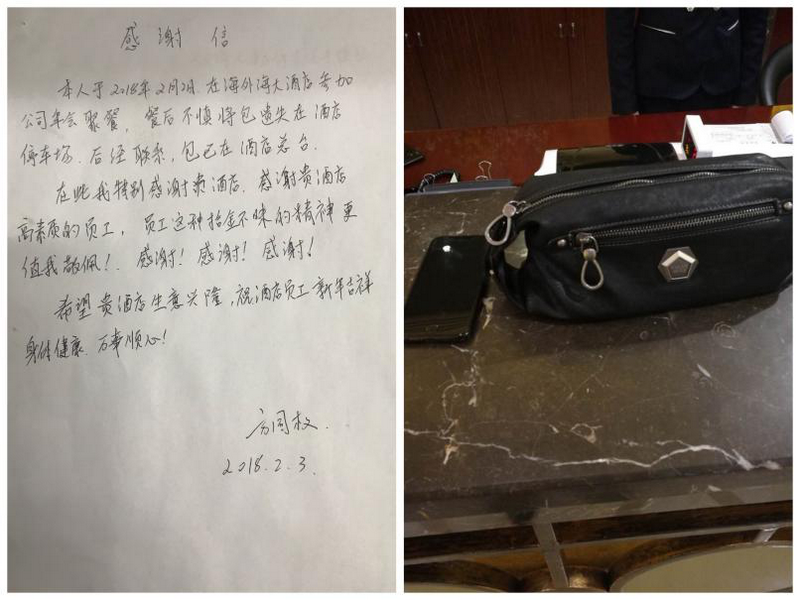 感谢信
本人于2018年2月2日在海外海大酒店参加
公司年会聚餐，餐后不慎将包遗失在酒店
停车场．后经联系，包已在酒店总台．
在此我特别感谢贵酒店．感谢贵酒店
高素质的员工，员工这种拾金不昧的精神更
值我敬佩！感谢！感谢！感谢！
希望贵酒店生意兴隆，祝酒店员工新年吉祥
身体健康．万事顺心！
2018.2.3.